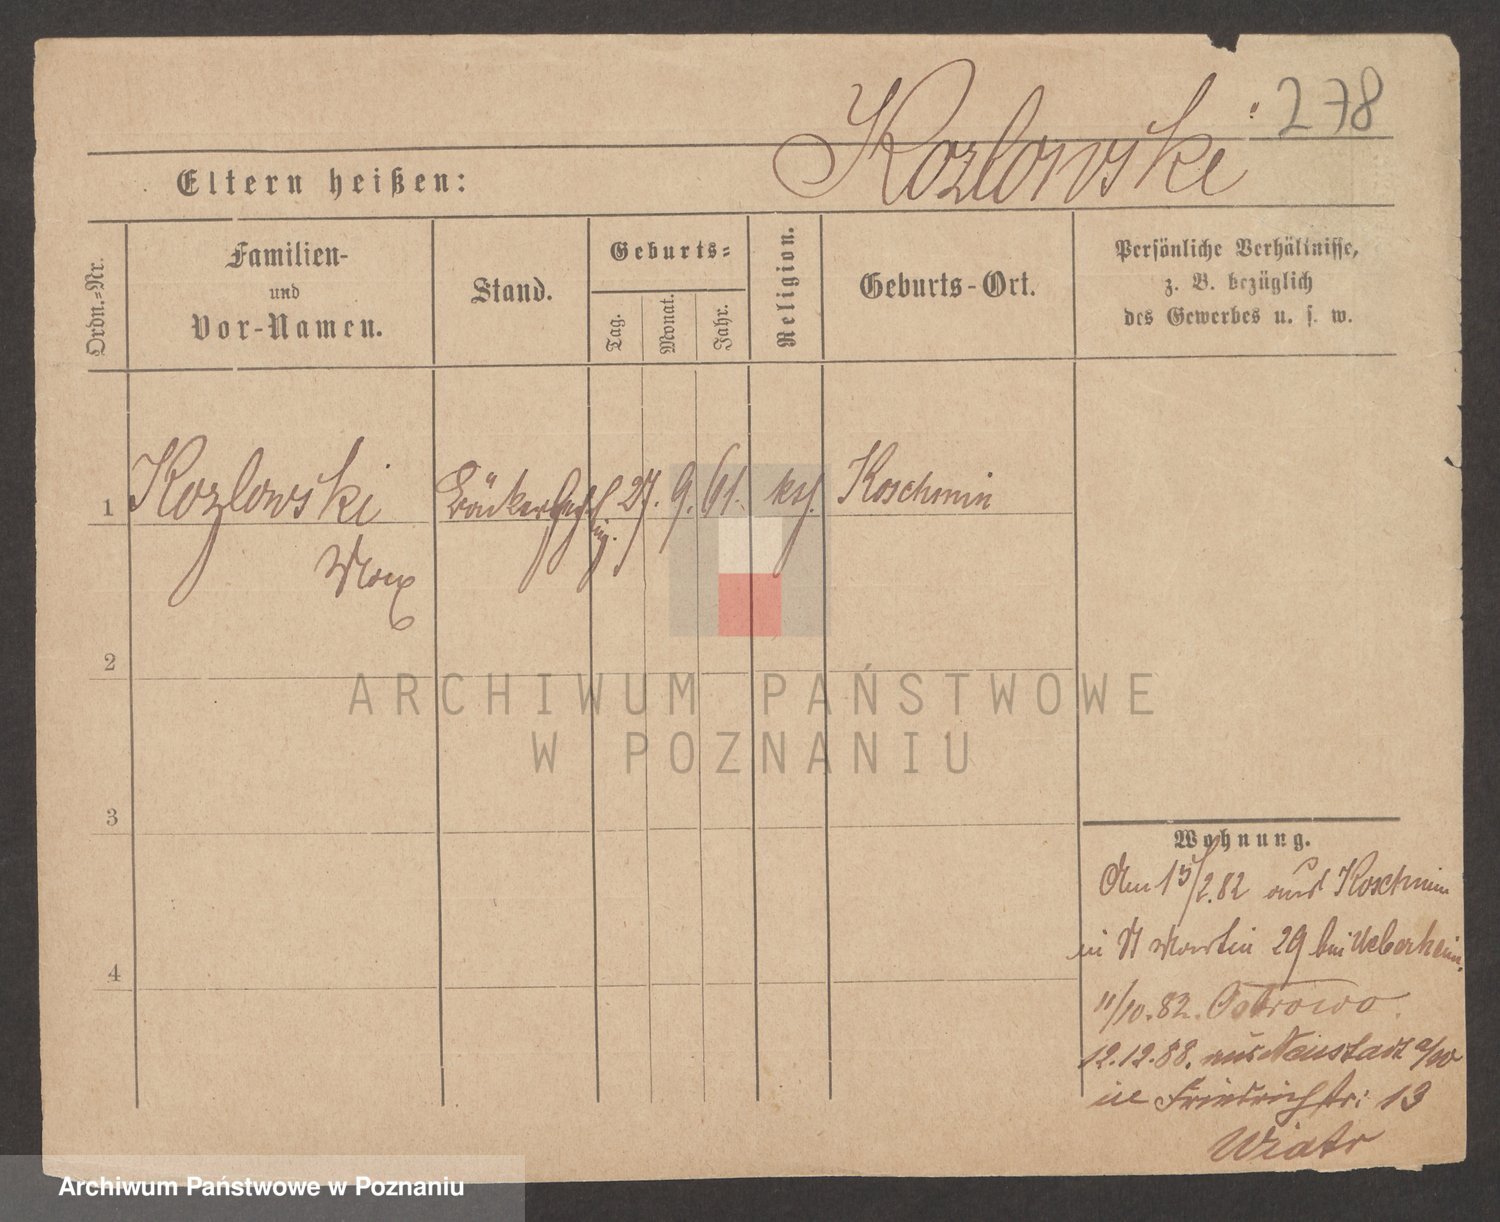 Kozlowski 278
Eltern heißen:
Ordn.=Nr.
Familien-
und
Vor-Namen.
Stand.
Geburts=
Tag.
Monat.
Jahr.
Religion.
Geburts-Ort.
Persönliche Verhältnisse,
z. B. bezüglich
des Gewerbes u. s. w.
1 Kozlowski 27. 9. 61. kth. Koschmin
Max
2
3
4
ARCHIWUM PAŃSTWOWE
W POZNANIU
Wohnung.
Am 15/2.82 aus Koschmin
in St Martin 29 bei Ueberhein.
11/10.82. Ostrowo.
12.12.88. aus Neustadt a/W
in Friedrichstr: 13
Wiatr
Archiwum Państwowe w Poznaniu